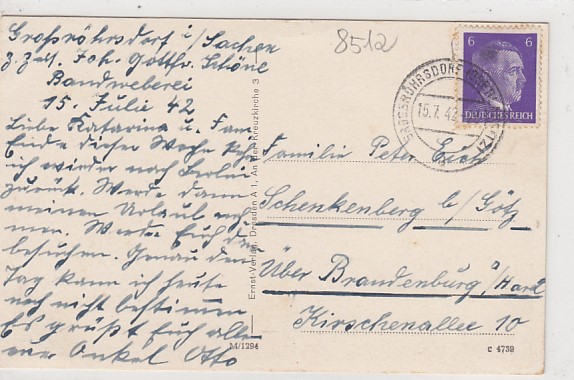 8512
Großröhrsdorf i/Sachsen
z.Zt. Joh. Gotthr. Schöne
Bandweberei
15. Julie 42
Liebe Katarina u. Fam.
Ende dieser Woche fahre
ich wieder nach Berlin
zurück. Werde dann
meinen Urlaub neh
men. Werde Euch dann
besuchen. Genau den
Tag kann ich heute
noch nicht bestimmen
Es grüßt Euch alle
euer Onkel Otto
Ernst-Verlag, Dresden A 1, An der Kreuzkirche 3
M/1294
6 6
DEUTSCHES REICH
GROSSRÖHRSDORF
15.7.42
Familie Peter
Schenkenberg b/Götz
Über Brandenburg a/Havel
Kirschenallee 10
C 4739